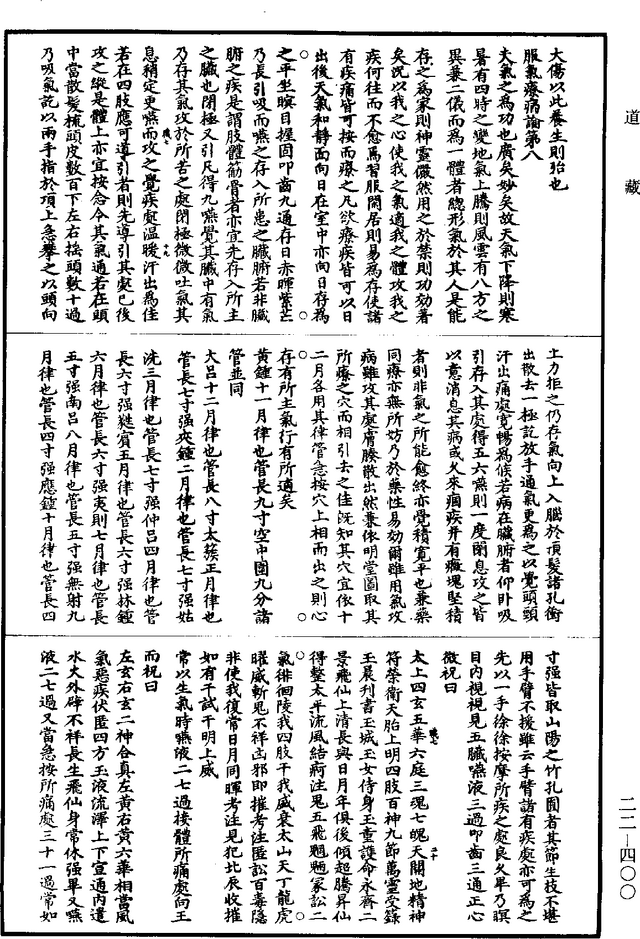 道藏
大傷以此養生則殆也
服氣療病論第八
夫氣之為功也廣矣妙矣故天氣下降則寒
暑有四時之變地氣上騰則風雲有八方之
異兼二儀而為一體者總形氣於其人是能
存之為家則神靈儼然用之於禁則功効著
矣況以我之心使我之氣適我之體攻我之
疾何往而不愈焉習服閑居則易為存使諸
有疾痛皆可按而療之凡欲療疾皆可以日
出後天氣和静面向日在室中亦向日存為
之平坐瞑目握固叩齒九通存日赤暉紫芒
乃長引吸而嚥之存入所患之臟腑若非臟
腑之疾是謂肢體筋骨者亦宜先存入所主
之臟也閉極又引凡得九嚥覺其臟中有氣
乃存其氣攻於所苦之處閉極微微吐氣其
息稍定更嚥而攻之覺疾處温暖汗出為佳
若在四肢應可導引者則先導引其處已後
攻之縱是體上亦宜按念令其氣通若在頭
中當散髮梳頭皮數百下左右摇頭數十過
乃吸氣訖以兩手指於項上急攀之以頭向
上力拒之仍存氣向上入腦於頂髮諸孔衝
出散去一極訖放手通氣更為之以覺頭頸
汗出痛處寬暢為候若病在臟腑者仰卧吸
引存入其處得五六嚥則一度閉息攻之皆
以意消息其病或久來痼疾并有癥塊堅積
者則非氣之所能愈終亦覺積寬平也兼藥
同療亦無所妨乃於藥性易効爾雖用氣攻
病雖攻其處膚腠散出然兼依明堂圖取其
所療之穴而相引去之佳既知其穴宜依十
二月各用其律管急按穴上相而出之則心
存有所主氣行有所適矣
黄鍾十一月律也管長九寸空中圍九分諸
管並同
大吕十二月律也管長八寸太蔟正月律也
管長七寸强夾鍾二月律也管長七寸强姑
洗三月律也管長七寸强仲吕四月律也管
長六寸强蕤賓五月律也管長六寸强林鍾
六月律也管長六寸强夷則七月律也管長
五寸强南吕八月律也管長五寸强無射九
月律也管長四寸强應鍾十月律也管長四
寸强皆取山陽之竹孔圓者其節生技不堪
用手臂不援雖云手臂諸有疾處亦可為之
先以一手徐徐按摩所疾之處良久畢乃瞑
目内視視見五臟嚥液三過叩齒三通正心
微祝曰
太上四玄五華六庭三魂七魄天關地精神
符榮衛天胎上明四肢百神九節萬靈受籙
玉晨刋書玉城玉女侍身玉童護命永齊二
景飛仙上清長與日月年俱後傾超騰昇仙
得整太平流風結痾注鬼五飛魍魎冢訟二
氣徘徊陵我四肢干我盛衰太山天丁龍虎
曜威斬鬼不祥凶邪即摧考注匿訟百毒隱
非使我復常日月同暉考注見犯北辰收摧
如有干試干明上威
常以生氣時嚥液二七過按體所痛處向王
而祝曰
左玄右玄二神合真左黄右黄六華相當風
氣惡疾伏匿四方玉液流澤上下宣通内遣
水火外辟不祥長生飛仙身常休强畢又嚥
液二七過又當急按所痛處三十一過常如
二二—四〇〇